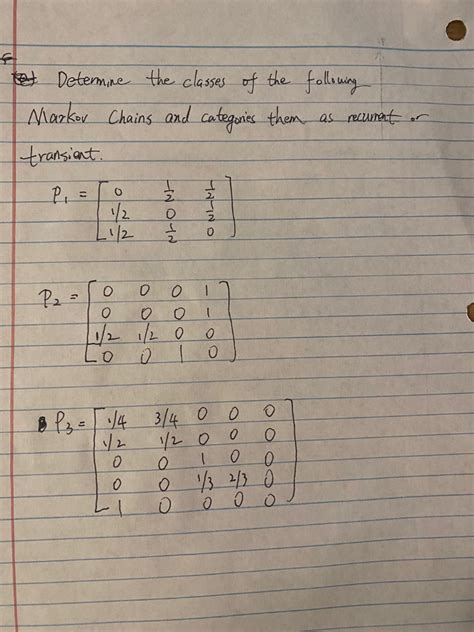 Determine the classes of the following
Markov Chains and categories them as recurrent or
transient.
P₁ = [ 0 1/2 1/2
1/2 0 1/2
1/2 1/2 0 ]
P₂ = [ 0 0 0 1
0 0 0 1
1/2 1/2 0 0
0 0 1 0 ]
P₃ = [ 1/4 3/4 0 0 0
1/2 1/2 0 0 0
0 0 1 0 0
0 0 1/3 2/3 0
1 0 0 0 0 ]